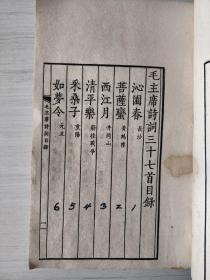 毛主席詩詞三十七首目錄
沁園春 長沙 1
菩薩蠻 黃鶴樓 2
西江月 井岡山 3
清平樂 蔣桂戰爭 4
采桑子 重陽 5
如夢令 元旦 6
毛主席詩詞目錄
一